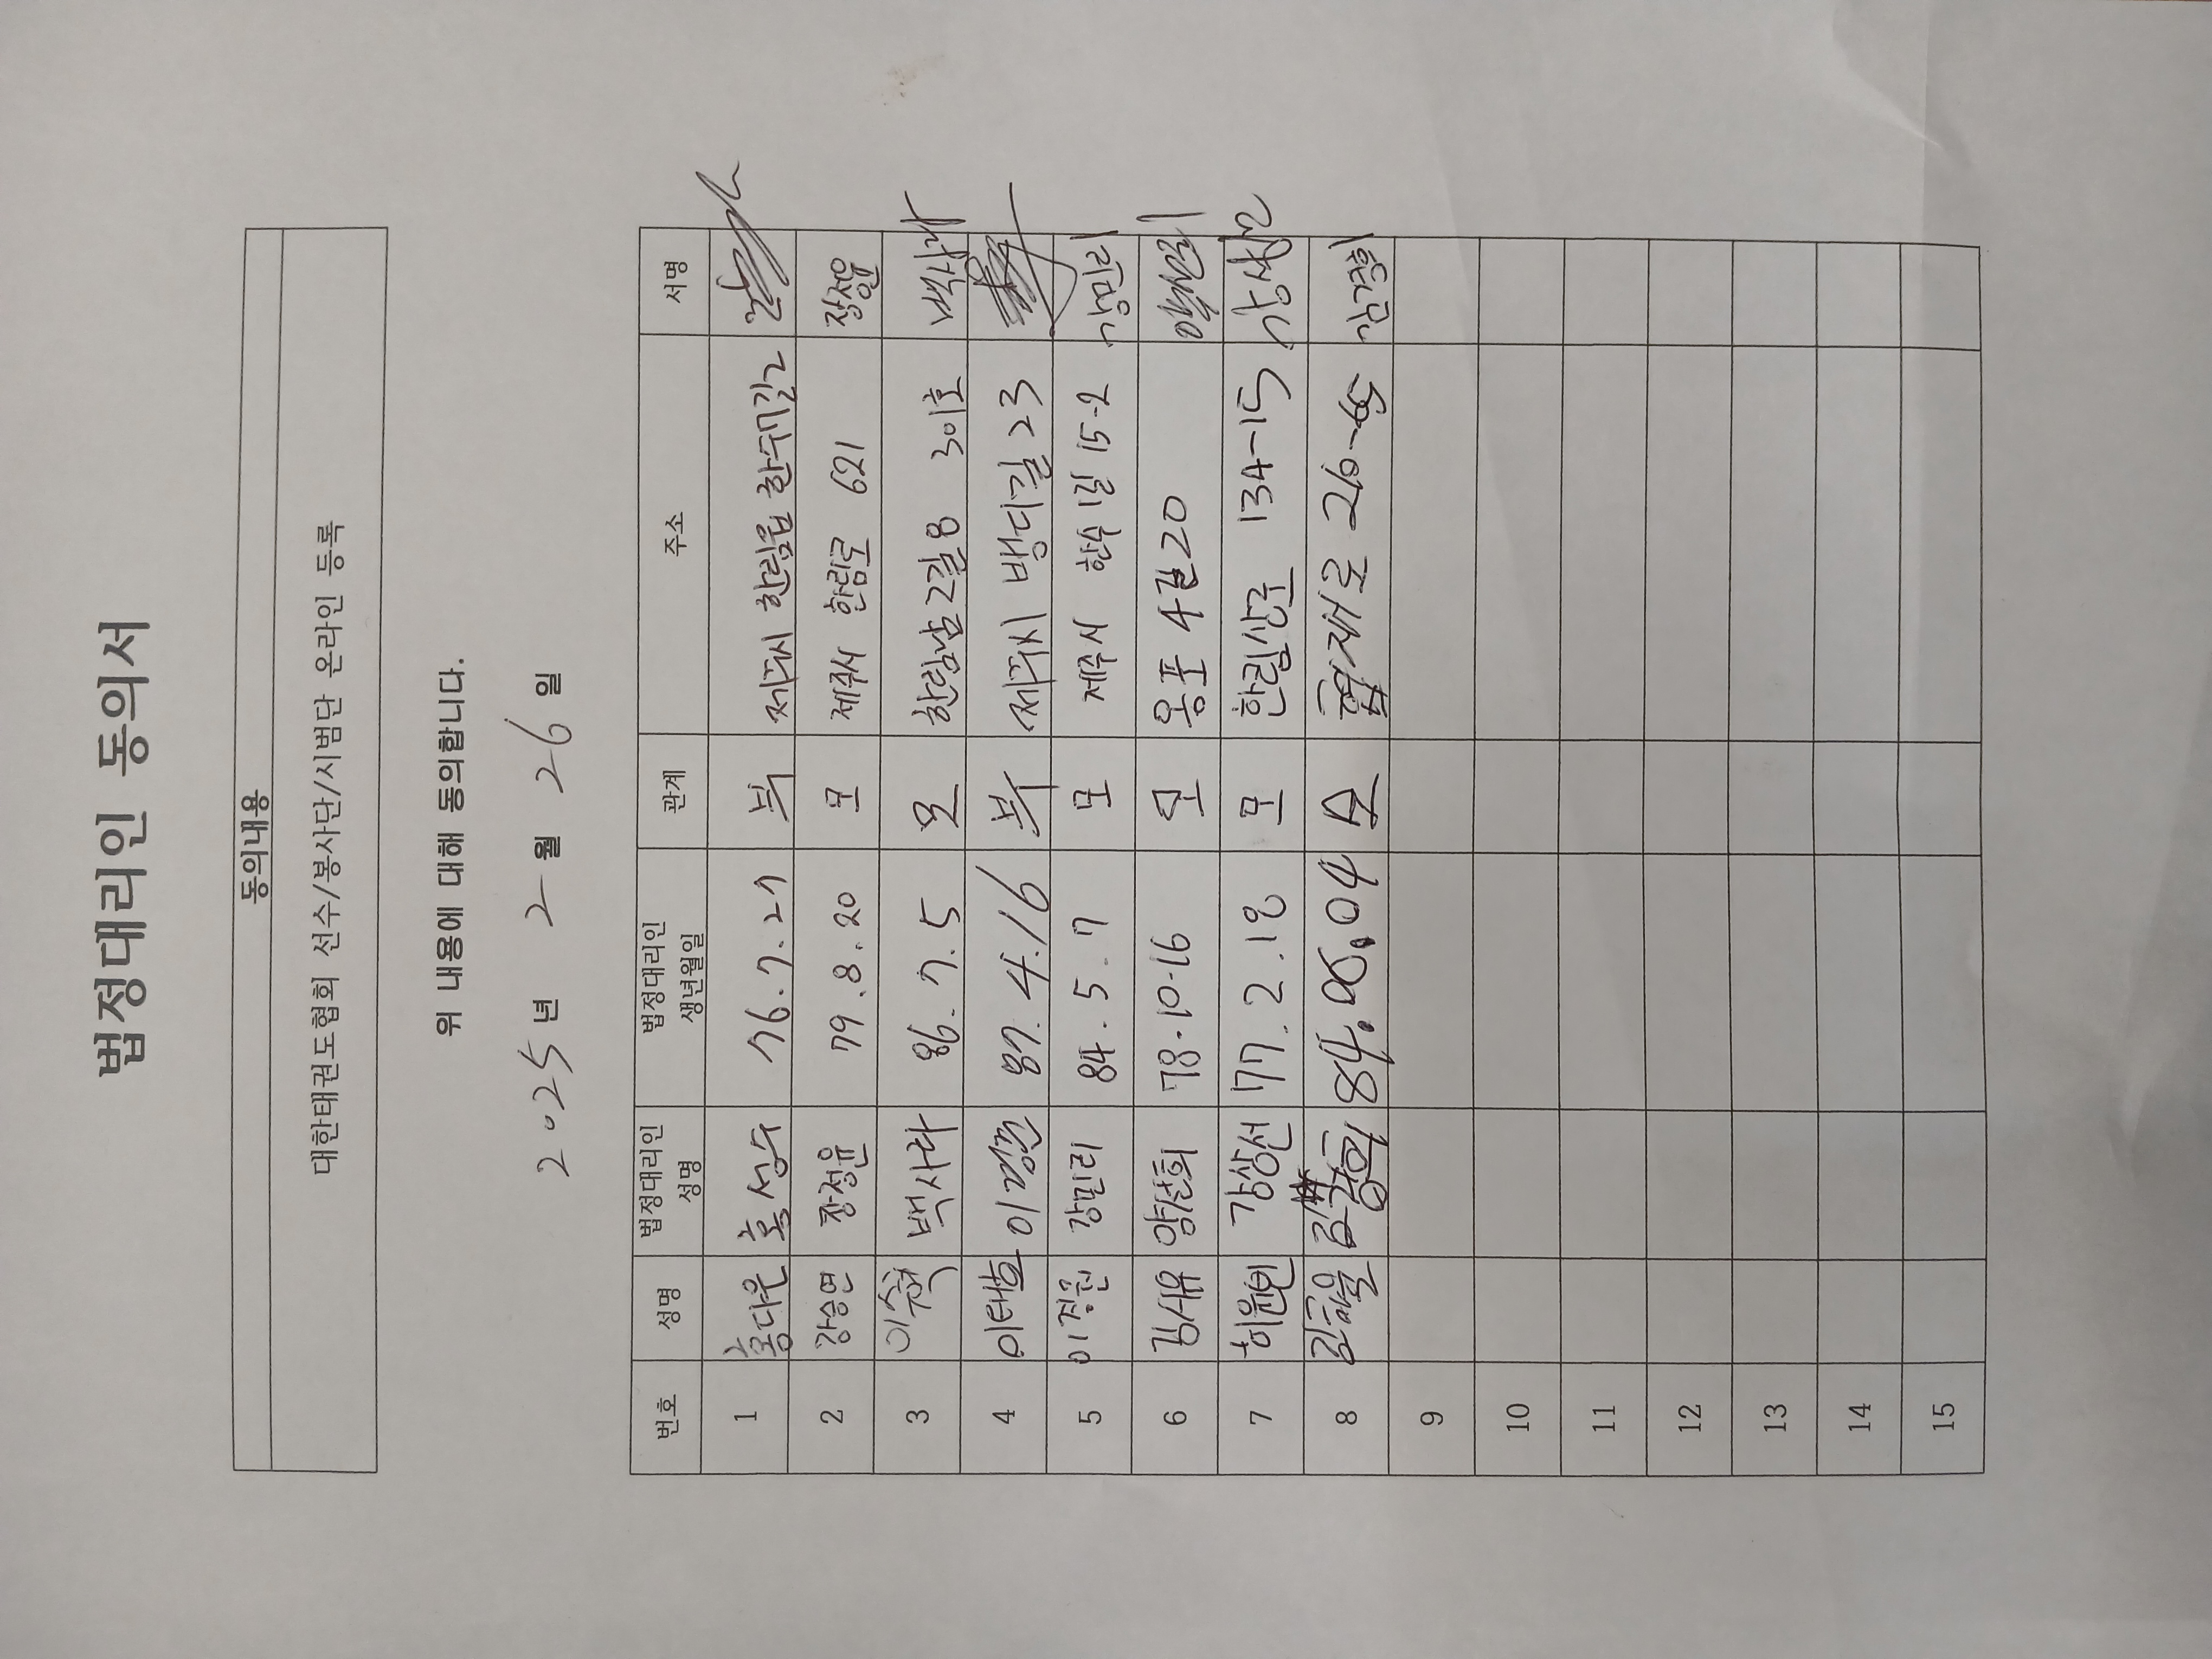 법정대리인 동의서
동의내용
대한태권도협회 선수/봉사단/시범단 온라인 등록
위 내용에 대해 동의합니다.
2025년 2월 26일
번호 성명 법정대리인 성명 법정대리인 생년월일 관계 주소 서명
1 홍다운 홍성수 76.7.27 부 제주시 한림읍 한수7길2
2 강승연 장정윤 79.8.20 모 제주시 한림로 621 장정윤
3 이수혁 백사라 86.7.5 모 한림남2길8 301호 백사라
4 이태호 이경준 87.4.16 부 제주시 뱅디길 23
5 이정훈 강민리 84.5.7 모 제주시 한수1길 15-2 강민리
6 김서유 양선희 78.10.16 모 옹포4길20
7 허윤빈 강상선 77.2.18 모 한림상로 134-15 강상선
8 84.06.04 모 협재로 26
9
10
11
12
13
14
15